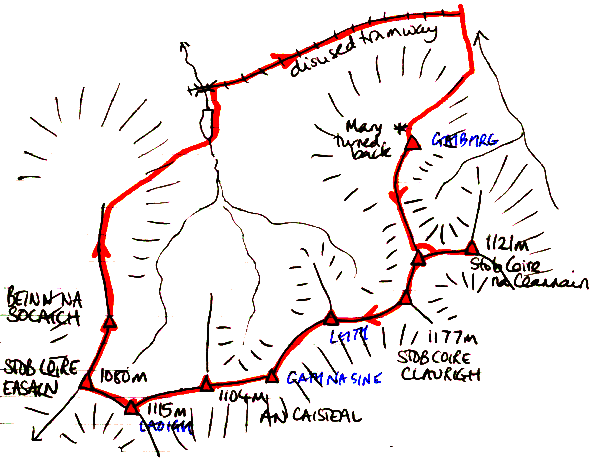 disused tramway
Mary
turned
back
GAIBHRE
1121m
Stob Coire
na Ceannain
1177m
STOB COIRE
CLAURIGH
LEITH
GARBH NA SINE
AN CAISTEAL
1104m
1115m
LAOIGH
1080m
STOB COIRE
EASAIN
BEINN NA
SOCAICH